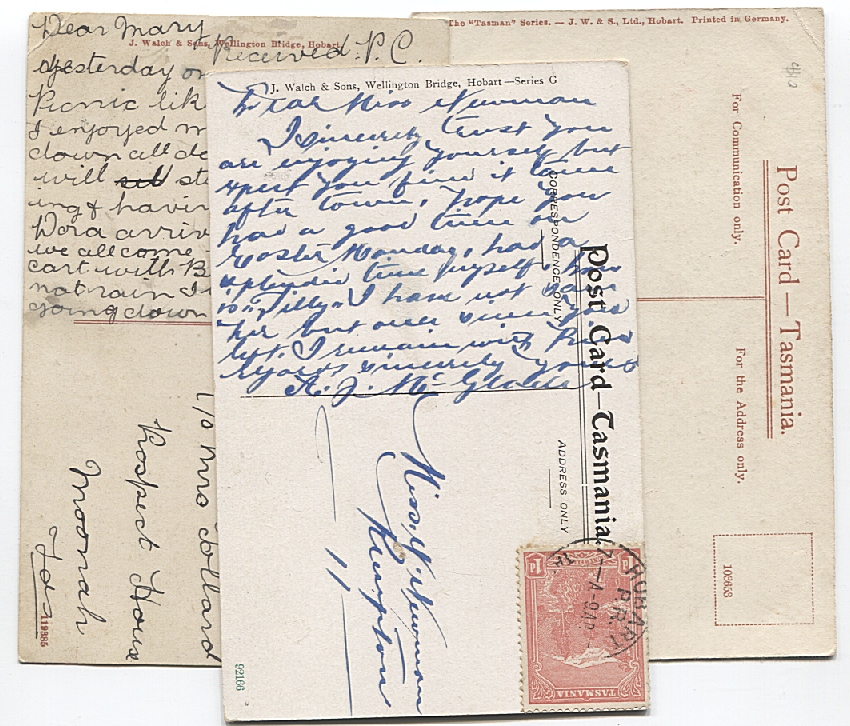 Dear Mary
J. Walch & Sons, Wellington Bridge, Hobart.
Received P.C.
yesterday on
Picnic lik
I enjoyed m
down all da
will sta
ing & havin
Dora arriv
we all come
cart with B
not rain I
going down
c/o Mrs Tollard
Prospect House
Moonah
119385
J. Walch & Sons, Wellington Bridge, Hobart—Series G
Dear Miss Newman
I sincerely trust you
are enjoying yourself but
xpect you find it tame
after town, hope you
had a good time on
Easter Monday, had a
splendid time myself, how
is Tilly. I have not
her but once since you
left. I remain with
yours sincerely
A. J. Mc
CORRESPONDENCE ONLY
Post Card—Tasmania.
ADDRESS ONLY
Miss Newman
Kempton
92166
HOBART
TASMANIA
1D
The "Tasman" Series. — J. W. & S., Ltd., Hobart. Printed in Germany.
For Communication only.
Post Card — Tasmania.
For the Address only.
103653